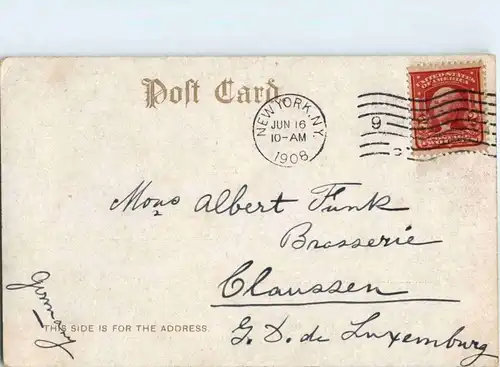 Post Card
NEW YORK, N.Y.
JUN 16
10-AM
1908
9
UNITED STATES
OF AMERICA
Mons Albert Funk
Brasserie
Claussen
G. D. de Luxemburg
Germany
THIS SIDE IS FOR THE ADDRESS.